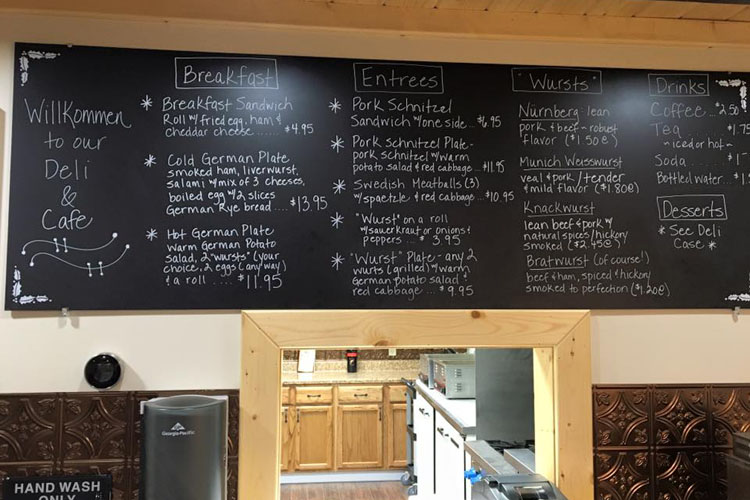 Willkommen
to our
Deli
&
Cafe
Breakfast
* Breakfast Sandwich
Roll w/ fried egg, ham &
cheddar cheese ..... $4.95
* Cold German Plate
smoked ham, liverwurst,
salami w/ mix of 3 cheeses,
boiled egg w/ 2 slices
German Rye bread .... $13.95
* Hot German Plate
Warm German Potato
Salad, 2 "wursts" (your
choice, 2 eggs (any way)
& a roll .... $11.95
Entrees
* Pork Schnitzel
Sandwich w/ one side... $6.95
* Pork Schnitzel Plate -
pork schnitzel w/ warm
potato salad & red cabbage ... $11.95
* Swedish Meatballs (3)
w/ spaetzle & red cabbage ... $10.95
* "Wurst" on a roll
w/ sauerkraut or onions &
peppers ... $3.95
* "Wurst" Plate - any 2
wurts (grilled) w/ warm
German potato salad &
red cabbage ... $9.95
"Wursts"
Nürnberg - lean
pork & beef - robust
flavor ($1.50@)
Munich Weisswurst
veal & pork / tender
& mild flavor ($1.80@)
Knackwurst
lean beef & pork w/
natural spices / hickory
smoked ($2.45@)
Bratwurst (of course!)
beef & ham, spiced & hickory
smoked to perfection ($1.20@)
Drinks
Coffee ... $2.50
Tea ... $1.75
- iced or hot -
Soda ... $1.
Bottled Water ... $1.
Desserts
* See Deli
Case *
Georgia-Pacific
HAND WASH
ONLY